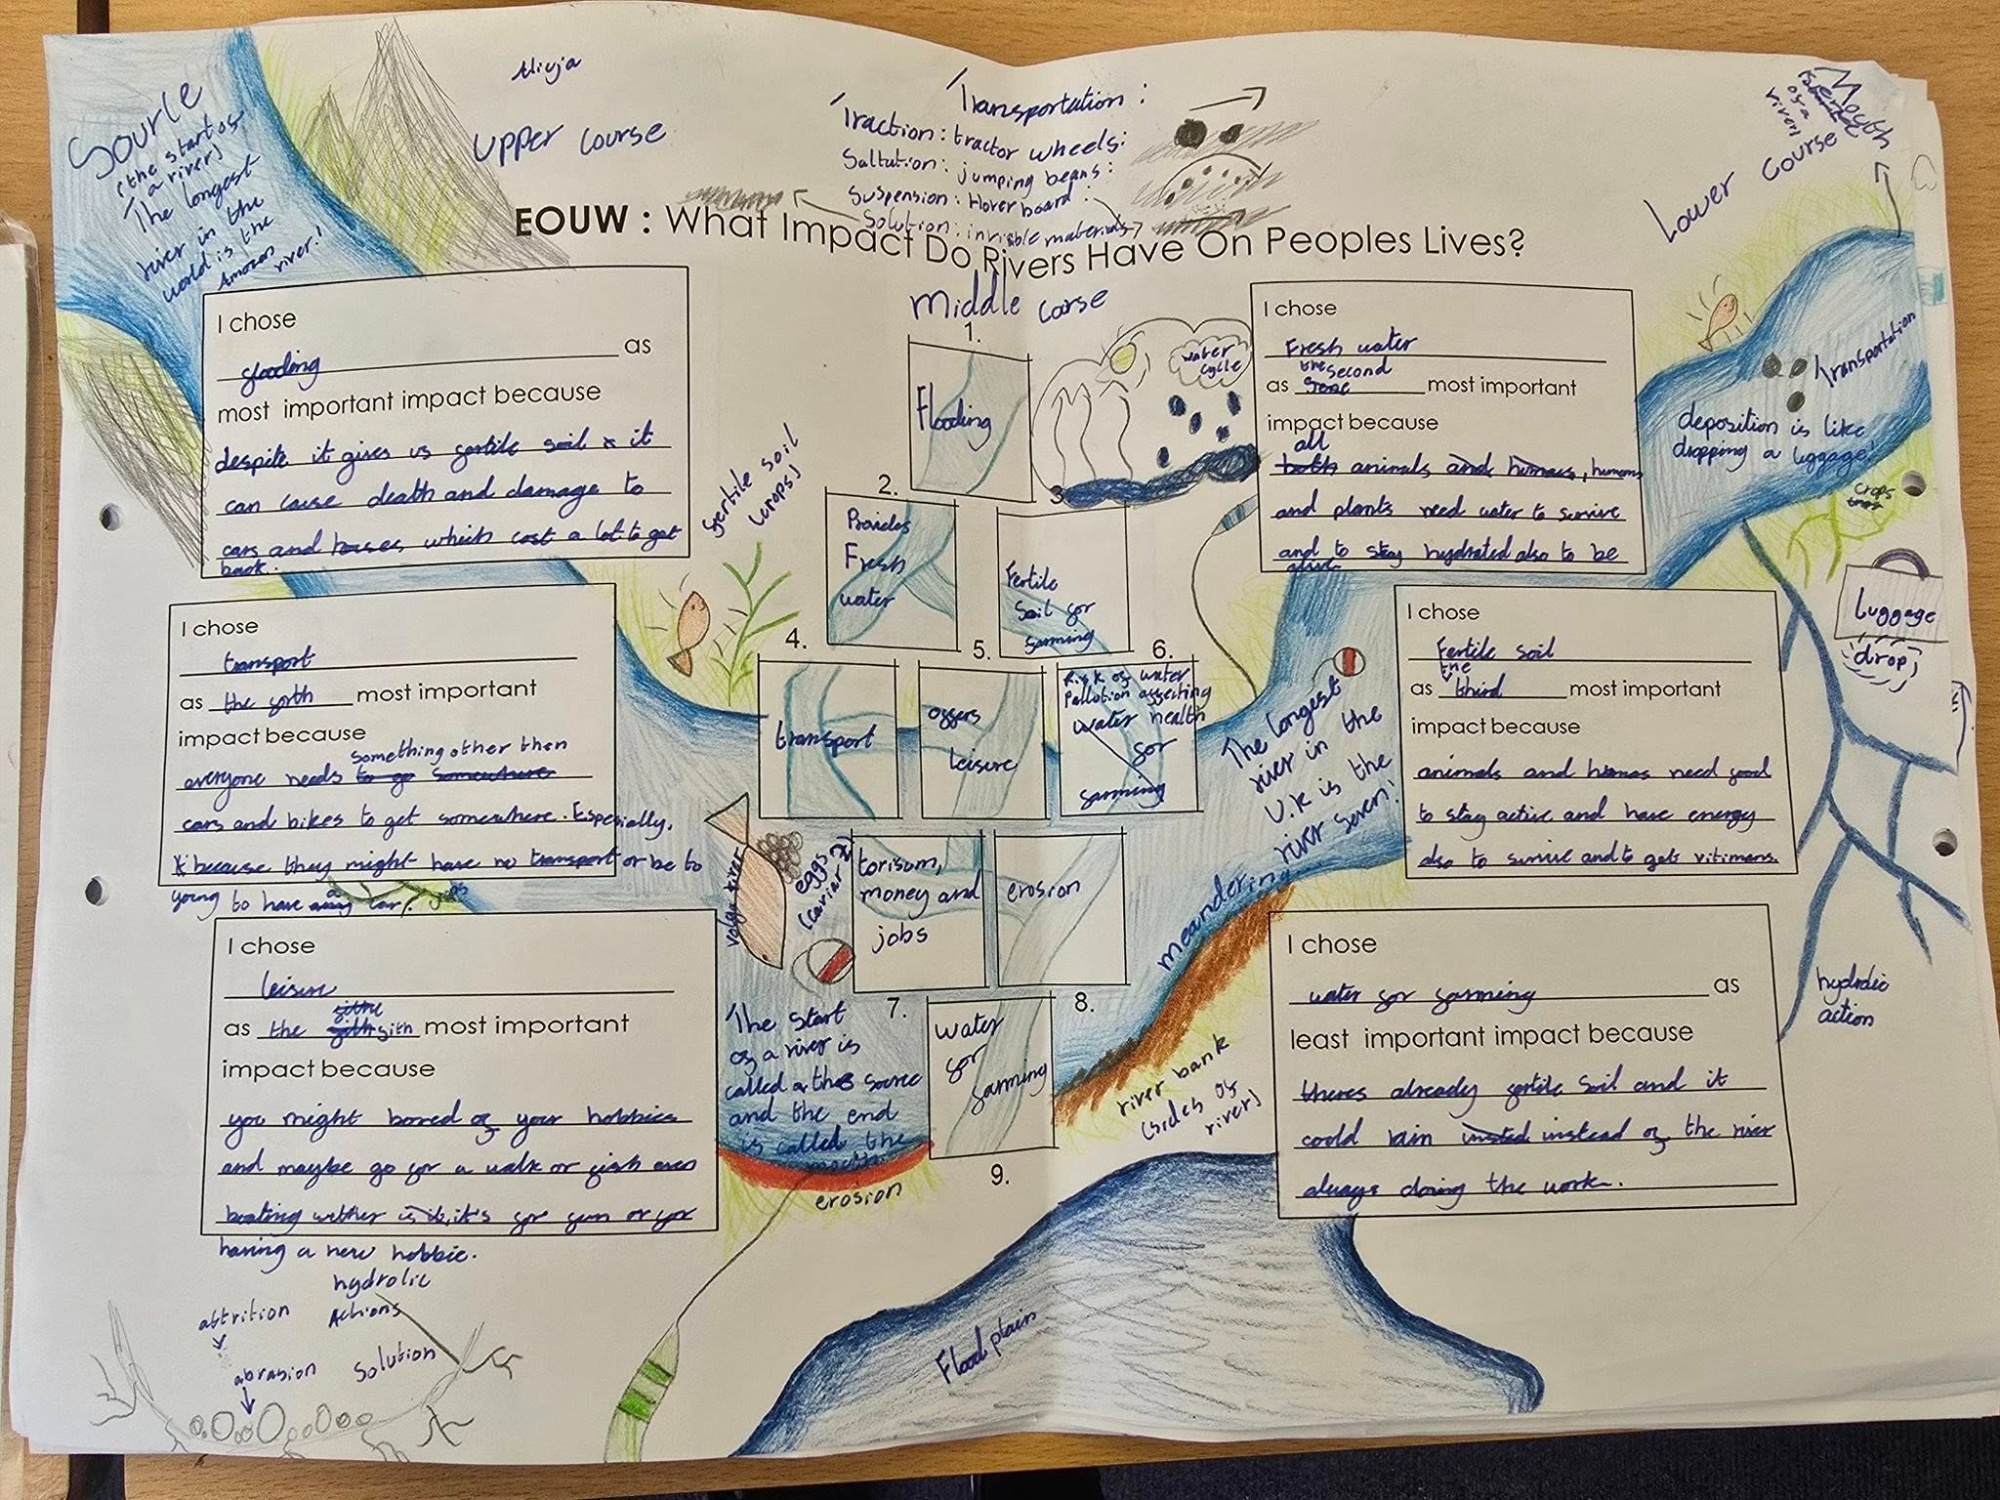 Source
(the start of
a river)
The longest
river in the
world is the
Amazon
river!
Upper course
Transportation:
Traction: tractor wheels:
Saltution: jumping beans:
Suspension: Hoverboard:
Solution: invisible materials
Mouth
of a
river)
Lower course
EOUW : What Impact Do Rivers Have On Peoples Lives?
Middle corse
I chose
flooding as
most important impact because
despite it gives us fertile soil it
can cause death and damage to
cars and houses which cost a lot to get
back.
fertile soil
(crops)
1.
Flooding
water
cycle
2.
Provides
Fresh
water
3
Fertile
Soil for
farming
4.
transport
5.
offers
leisure
6.
Risk of water
Pollution affecting
water health
for
farming
torisum,
money and
jobs
7.
erosion
8.
water
for
farming
9.
I chose
Fresh water
as the second most important
impact because
all
both animals and humans, humans
and plants need water to survive
and to stay hydrated also to be
alive
Transportation
deposition is like
dropping a luggage!
crops
luggage
drop
I chose
transport
as the forth most important
impact because
something other then
everyone needs to go somewhere
cars and bikes to get somewhere. Especially,
because they might have no transport or be to
young to have a car.
I chose
Fertile soil
as the third most important
impact because
animals and humas need food
to stay active and have energy
also to survive and to get vitimans.
The longest
river in the
U.K is the
river seven!
meandering
volga river
eggs
(caviar)
I chose
leisure
as the fith most important
impact because
you might bored of your hobbies
and maybe go for a walk or fish even
boating wether is it, it's for fun or for
having a new hobbie.
The start
of a river is
called a the source
and the end
is called the
mouth.
erosion
river bank
(sides of
river)
I chose
water for farming as
least important impact because
theres already fertile soil and it
could rain insted instead of the river
always doing the work.
hydrolic
action
hydrolic
Actions
attrition
abrasion
Solution
Flood plain